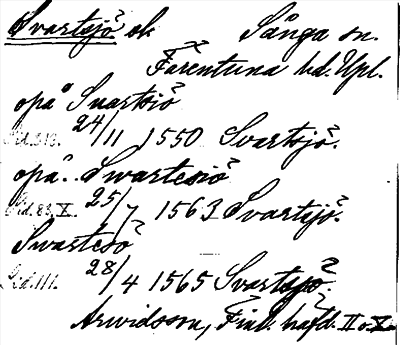 Svartsjö sk Sånga sn.
Färentuna hd. Upl.
opå Suartsiö
24/11 1550 Svartsjö.
opå. Swartesiö
Sid. 83. X. 25/7 1563 Svartsjö.
Swartesö
Sid. 111. 28/4 1565 Svartsjö.
Arwidsson, Finl. häfd. II o. X.